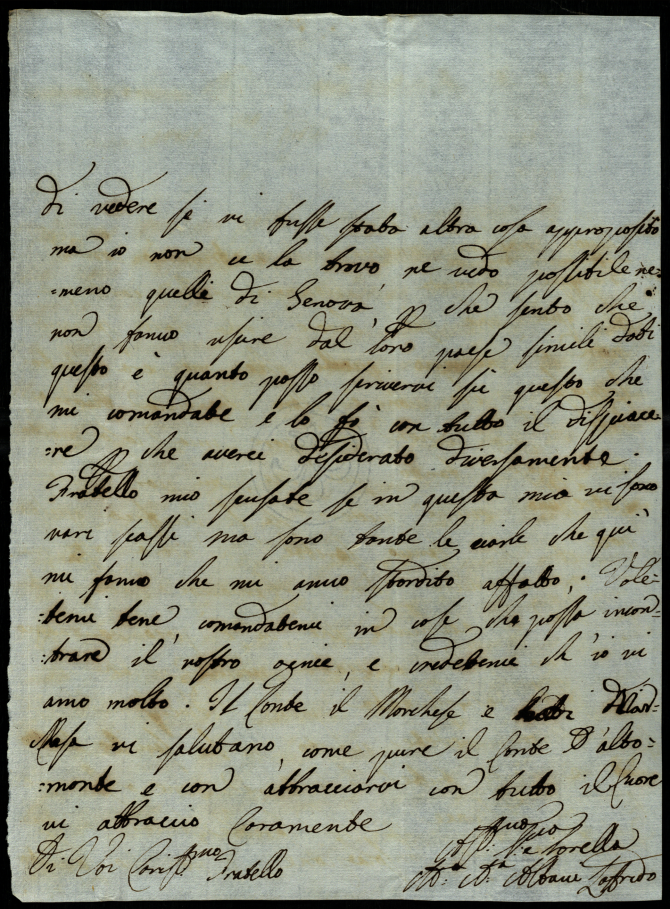 di vedere se vi fusse stata altra cosa approposito
ma io non ce la trovo ne vedo possibile ne:
=meno quelle di Genova, p che sento che
non fanno usire dal loro paese simili doti
questo è quanto posso scrivervi sù questo che
mi comandate e lo fò con tutto il dispiace
=re p che averei desiderato diversamente.
Fratello mio scusate se in questa mia vi sono
vari scassi ma sono tante le ciarle che quì
mi fanno che mi anno stordito affatto; Vole=
=temi bene, comandatemi in cose che possa incon=
=trare il vostro genie, e credetemi ch'io vi
amo molto. Il Conte il Marchese e tutti di
Casa vi salutano, come pure il Conte D'alto=
=monte e con abbracciarvi con tutto il Cuore
vi abbraccio Caramente
Di Voi Cariss.mo Fratello
Aff.ma Sorella
Albani